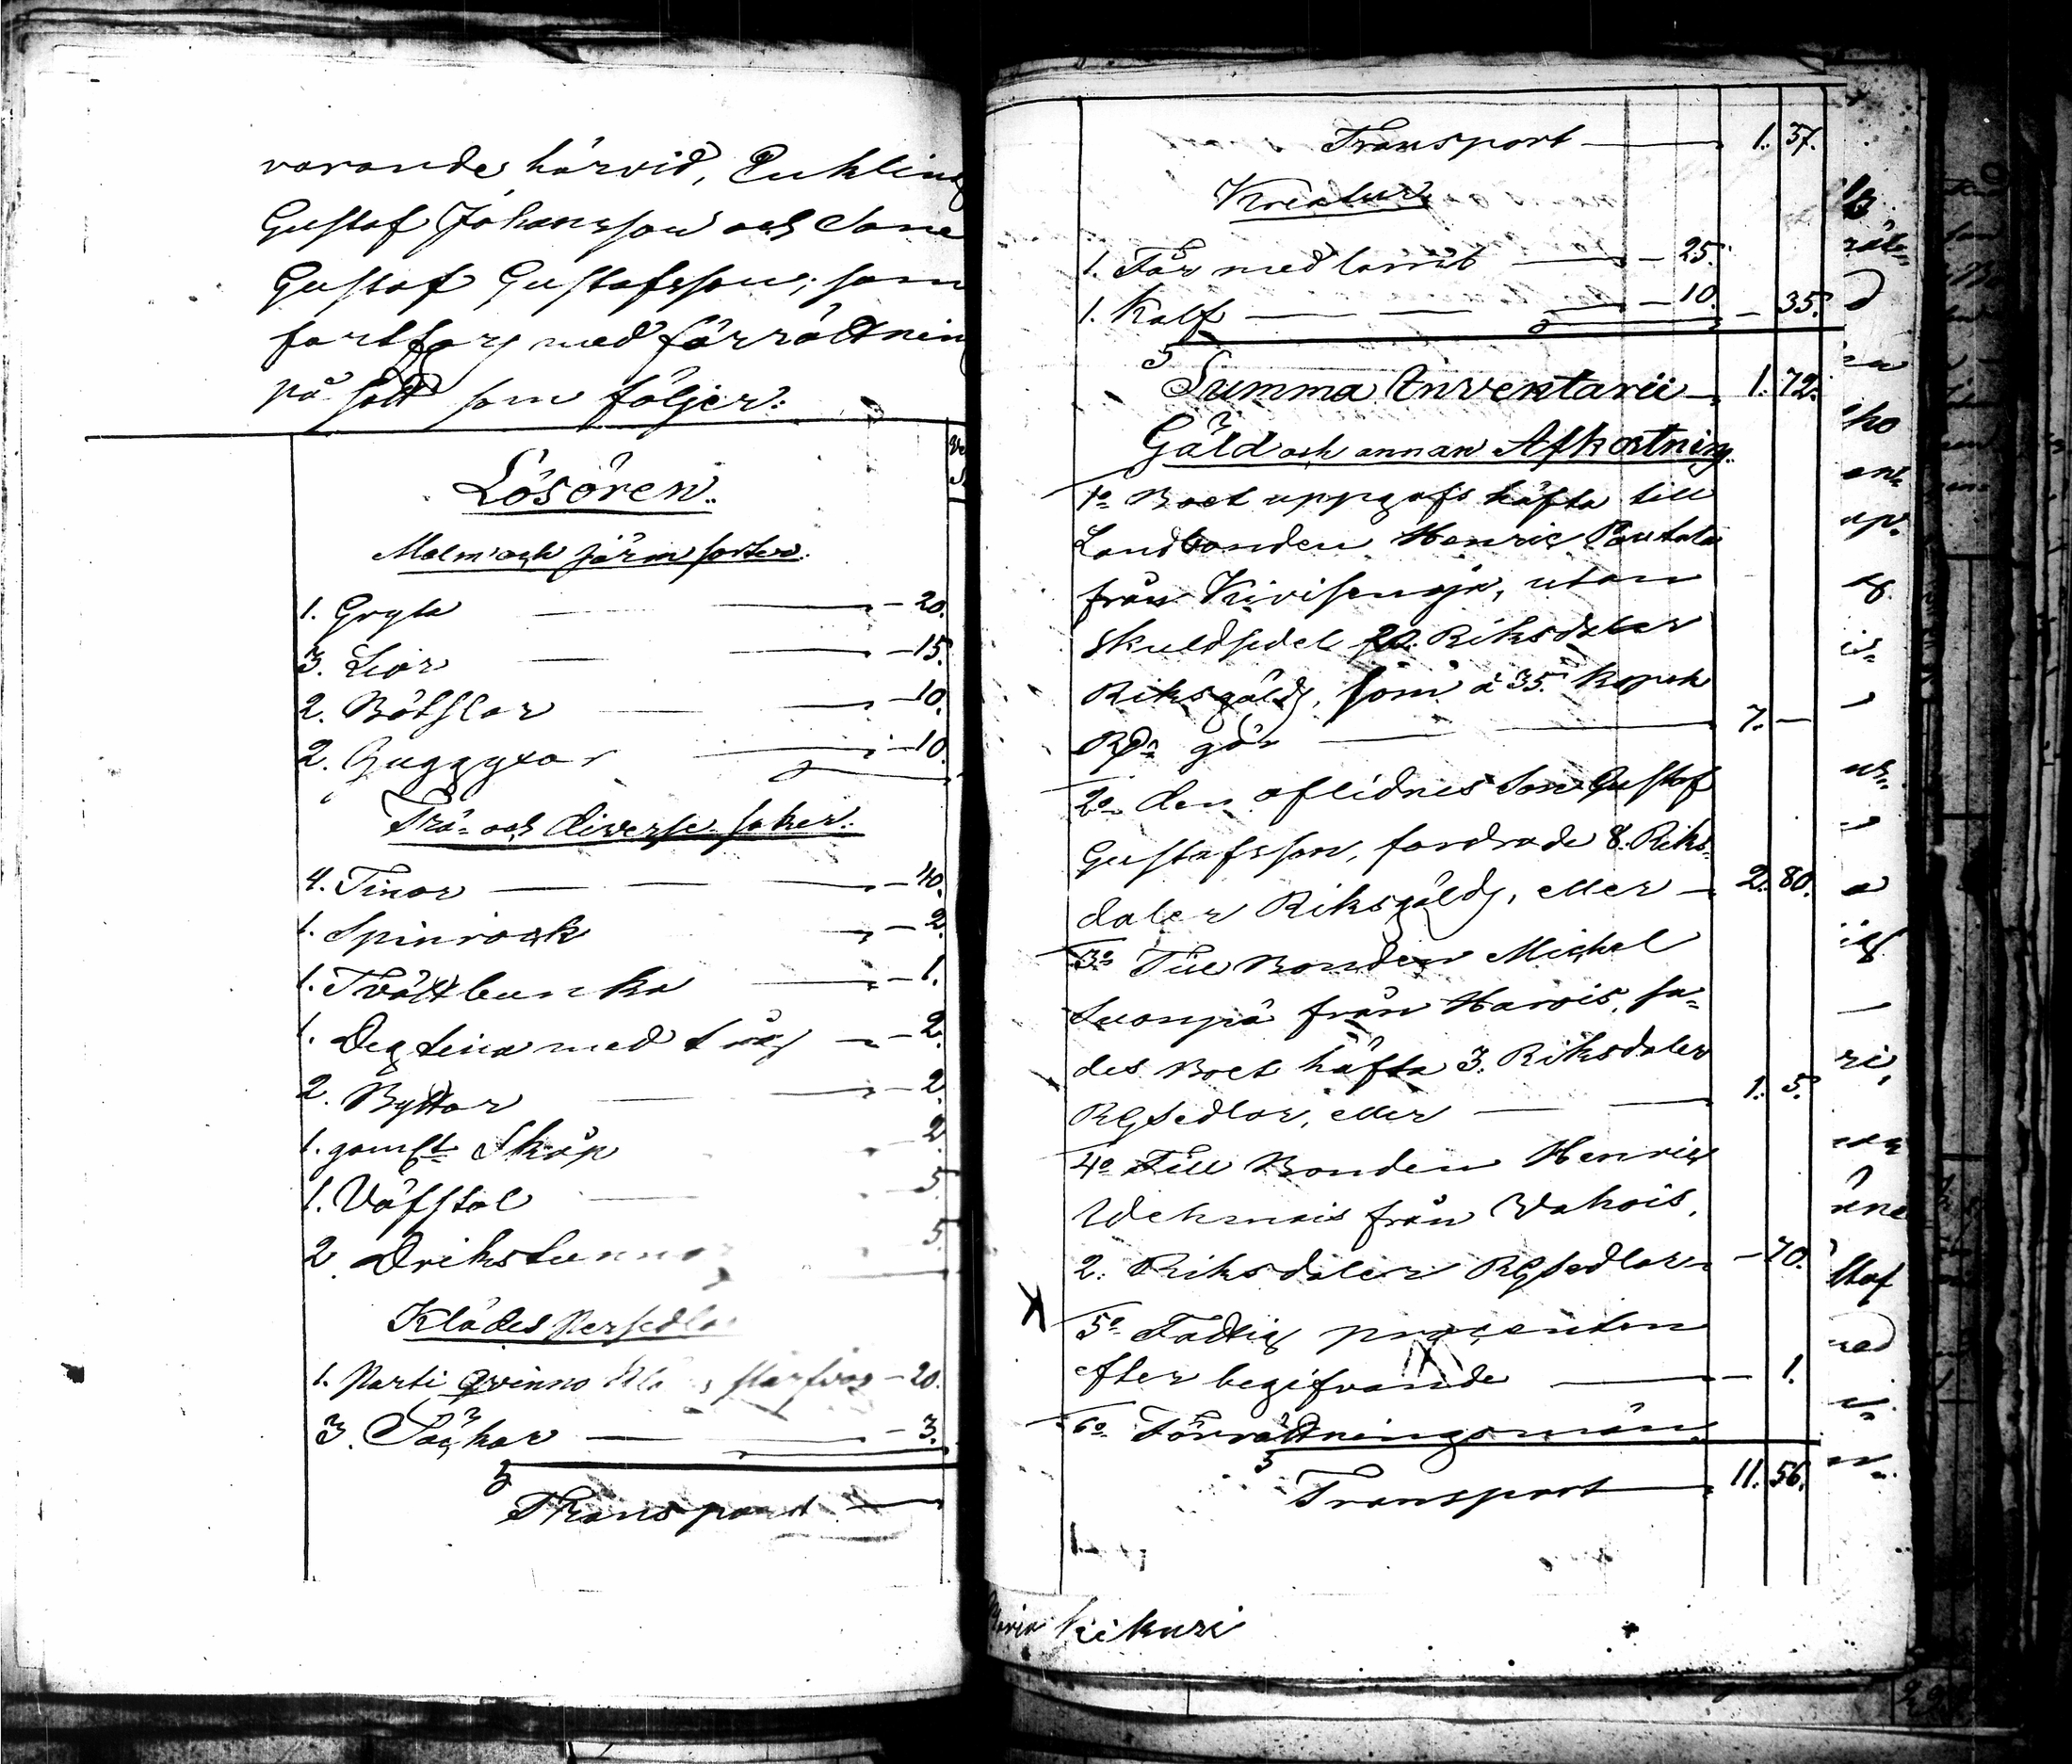 varande härvid, Enkling
Gustaf Johansson och Sone
Gustaf Gustafsson, som
fortfor med förrättning
på sätt som följer:
Lösören.
Malm och järn sorter.
1. Gryta — 20.
3. Liar — 15.
2. Bötslar — 10.
2. — 10.
Trä- och diverse saker.
4. Tinor — 40.
1. Spinrock — 2.
1. Tvättbunka — 1.
1. Degtina med tråg — 2.
2. Byttor — 2.
1. gamlt Skåp — 2
1. Väfstol — 5.
2. Drikstunnor — 5.
Klädes Persedlar
1. Parti Qvinno — 20.
3. Säckar — 3.
Transport —
Transport — 1. 37.
Kreatur
1. Får med lamb — 25.
1. Kalf — 10. — 35.
Summa Inventarii — 1. 72.
Gäld och annan Afkortning.
1o Boet uppgafs häfta till
Landbonden Henric Pautola
från, utan
skuldsedel 20. Riksdaler
Riksgälds, som à 35. Kopek
Rdr gör — 7. —
2o den aflidnes Son Gustaf
Gustafsson, fordrade 8. Riks-
daler Riksgälds, eller — 2. 80.
3o Till Bonden Michel
Suonpä från Harois, sa-
des Boet häfta 3. Riksdaler
RGsedlar, eller — 1. 5.
4o Till Bonden Henric
Wehmais från Wahois,
2. Riksdaler RGsedlar — 70.
5o Fattig procenten
efter begifvande — 1.
6o Förrättningsmän
Transport — 11. 56.
Maria Kikuri